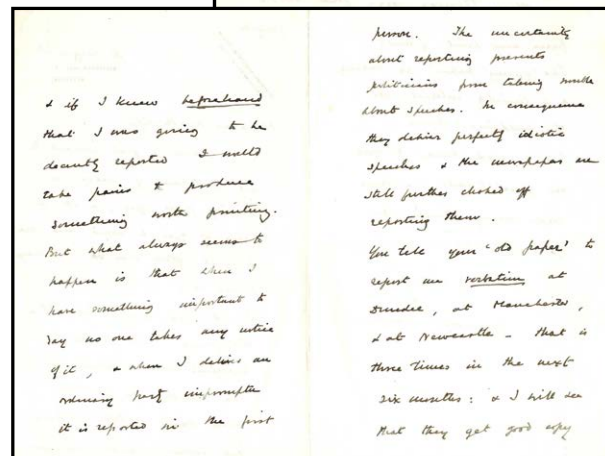 & if I knew beforehand
that I was going to be
decently reported I would
take pains & produce
something worth printing.
But what always seems to
happen is that when I
have something important to
say no one takes any notice
of it, & when I deliver an
ordinary party impromptu
it is reported in the first
person. The uncertainty
about reporting prevents
politicians from taking trouble
about speeches. In consequence
they deliver perfectly idiotic
speeches & the newspapers are
still further choked off
reporting them.
You tell your 'old paper' to
report me verbatim at
Dundee, at Manchester,
& at Newcastle - that is
three times in the next
six months: & I will see
that they get good copy